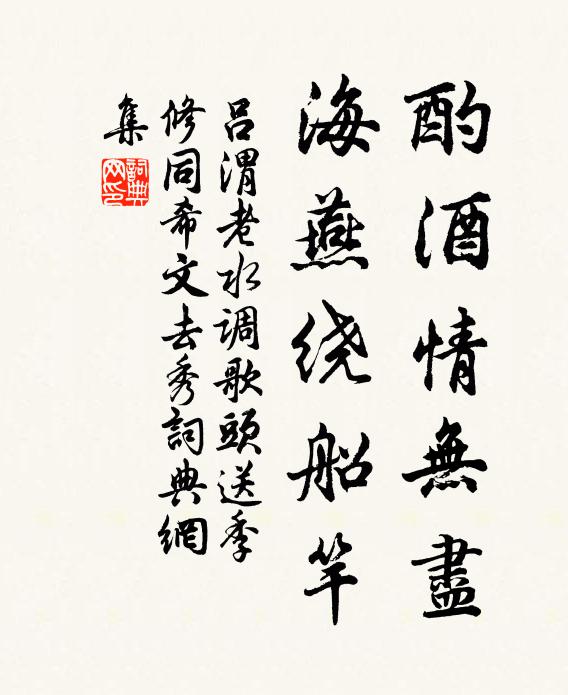 酌酒情無盡
海燕绕船竿
吕渭老水调歌頭送季
修同希文去秀詞典網
集
詞典网印